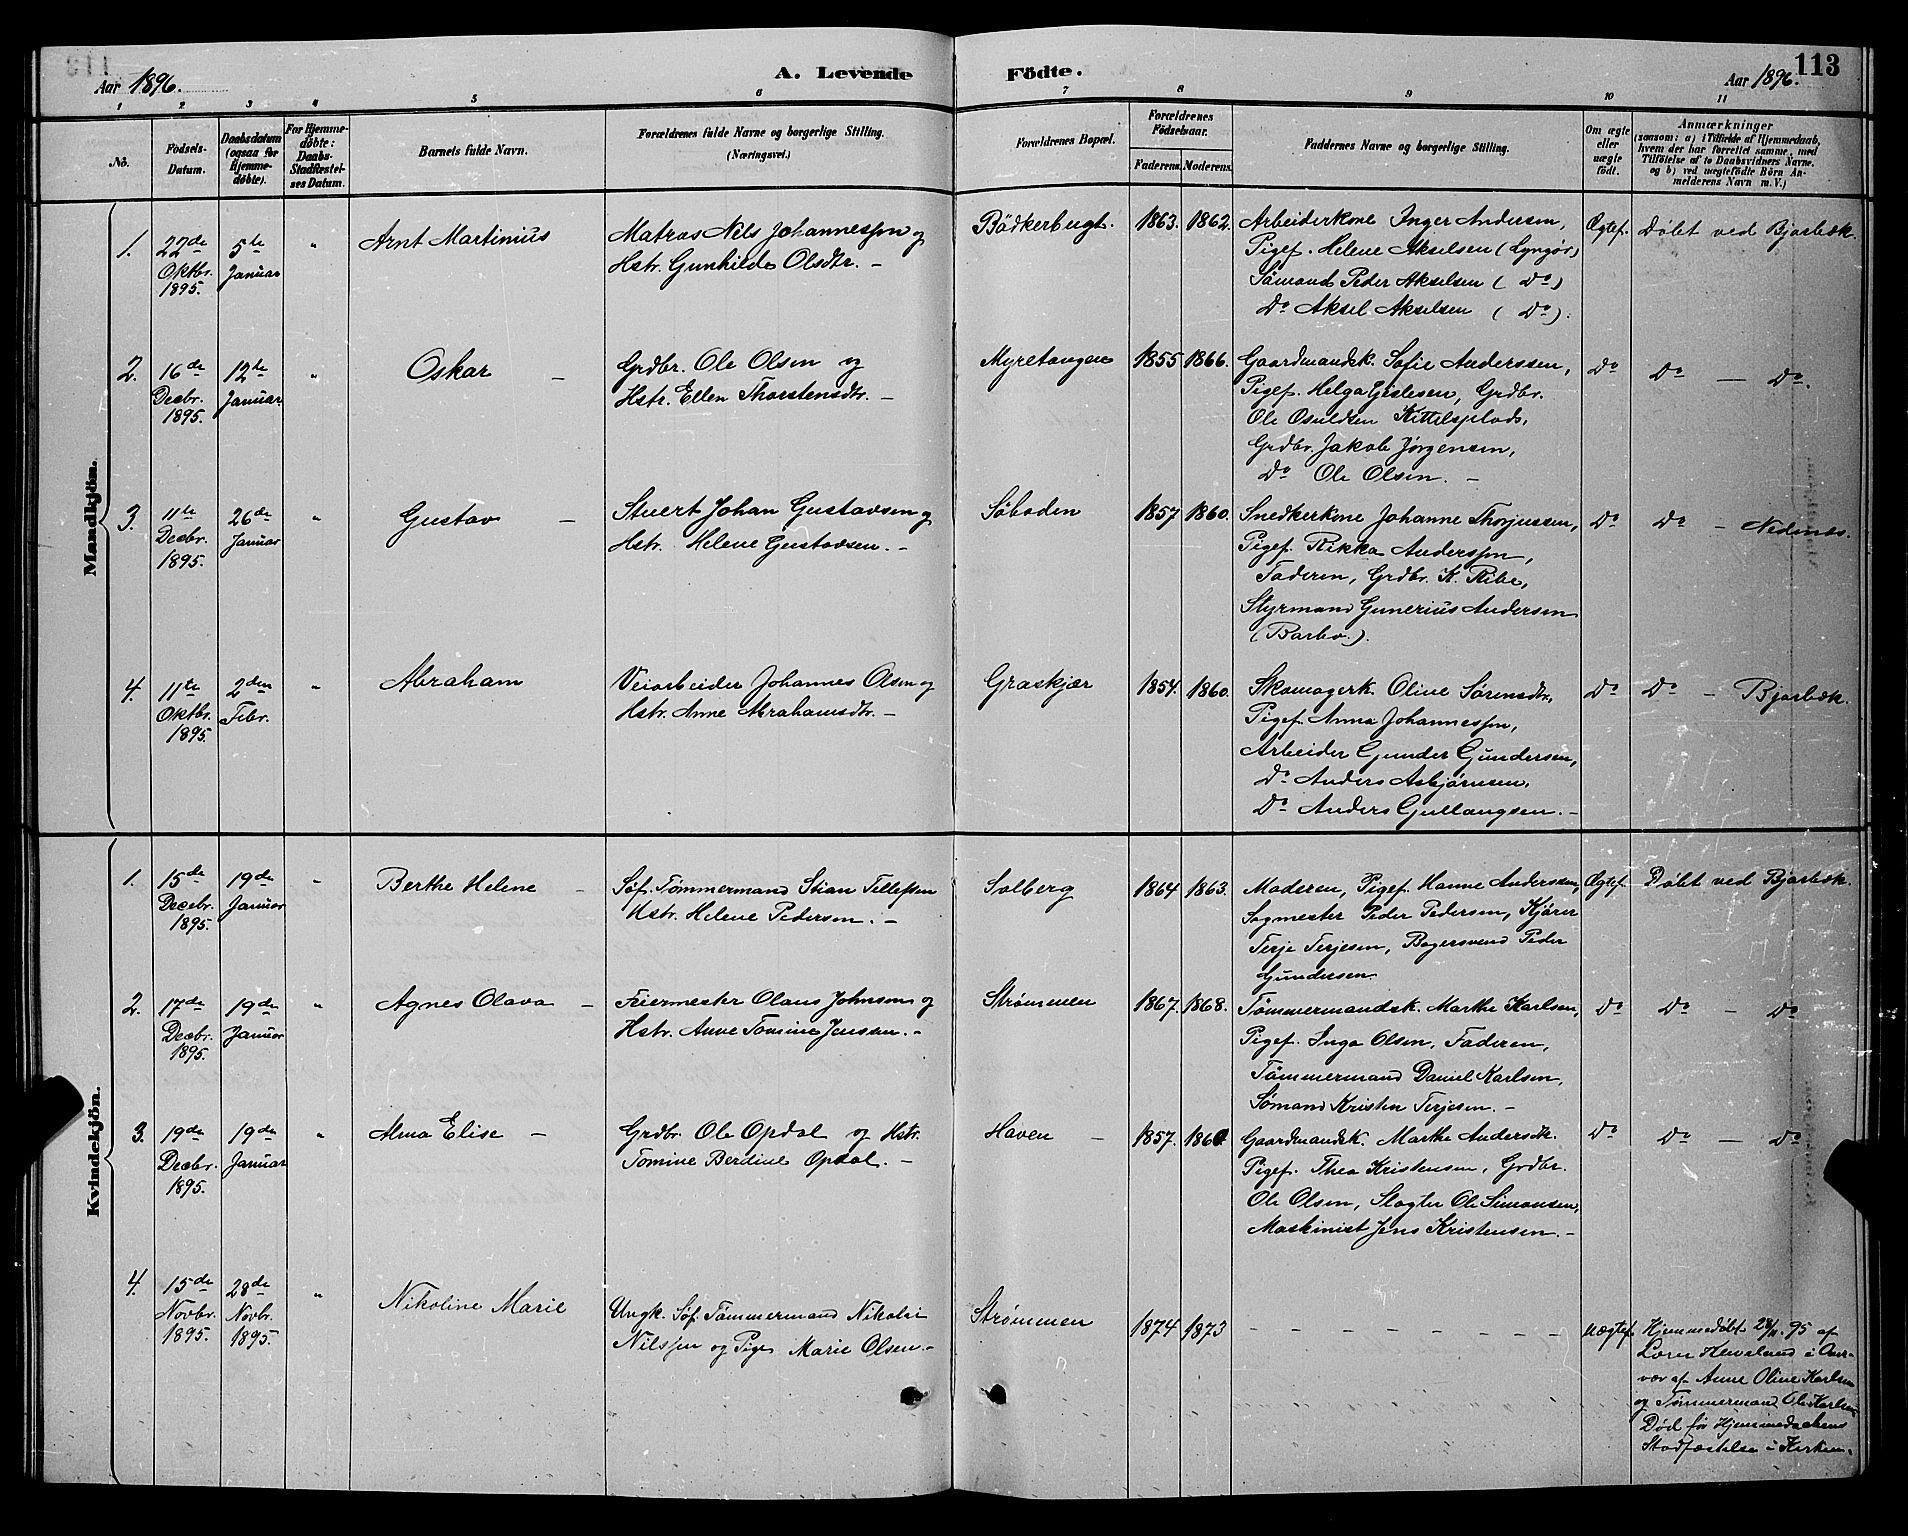 Aar 1896. A. Levende Födte. Aar 1896. 113
1 2 3 4 5 6 7 8 9 10 11
No.
Födsels-
Datum.
Daabsdatum
(ogsaa for
Hjemme-
döbte).
For Hjemme-
döbte:
Daabs-
Stadfæstel-
ses Datum.
Barnets fulde Navn.
Forældrenes fulde Navne og borgerlige Stilling.
(Næringsvei.)
Forældrenes Bopæl.
Forældrenes
Födselsaar.
Faderens. Moderens.
Faddernes Navne og borgerlige Stilling.
Om ægte
eller
uægte
födt.
Anmærkninger
(saasom: a) i Tilfælde af Hjemmedaab,
hvem der har forrettet samme, med
Tilföielse af to Daabsvidners Navne,
og b) ved uægtefödte Börn An-
melderens Navn m. V.)
Mandkjön.
1.
22de
Oktbr.
1895.
5te
Januar
"
Arnt Martinius
Matros Nils Johannessen og
Hstr. Gunhilde Olsdtr. —
Bödkerbugt.
1863. 1862.
Arbeiderkone Inger Andersen,
Pigef. Helene Akselsen (Lyngör)
Sömand Peder Akselsen ( Do)
Do Aksel Akselsen ( Do).
Ægtef.
Döbt ved Bjorbæk.
2.
16de
Decbr.
1895.
12te
Januar
"
Oskar —
Grdbr. Ole Olsen og
Hstr. Ellen Thorstensdtr. —
Myretangen
1855 1866.
Gaardmandsk. Sofie Anderssen,
Pigef. Helga Gislesen, Grdbr.
Ole Osuldsen Kittelsplads,
Grdbr. Jakob Jørgensen,
Do Ole Olsen. —
Do
Do — Do.
3.
11te
Decbr.
1895.
26de
Januar
"
Gustav —
Stuert Johan Gustavsen og
Hstr. Helene Gustavsen. —
Söboden
1857 1860.
Snedkerkone Johanne Thorjussen,
Pigef. Rikka Anderssen,
Faderen, Grdbr. K. Ribe,
Styrmand Gunerius Andersen
(Barbo.).
Do
Do — Nedenes.
4.
11te
Oktbr.
1895.
2den
Febr.
"
Abraham
Veiarbeider Johannes Olsen og
Hstr. Anne Abrahamsdtr. —
Graskjær
1854. 1860.
Skomagerk. Oline Sørensdtr,
Pigef. Anna Johannessen,
Arbeider Gunder Gundersen,
Do Anders Asbjørnsen,
Do Anders Gullangsen. —
Do
Do — Bjorbæk.
Kvindekjön.
1.
15de
Decbr.
1895.
19de
Januar
"
Berthe Helene —
Söf. Tømmermand Stian Tellefsen
Hstr. Helene Pedersen. —
Solberg
1864 1863.
Moderen, Pigef. Hanne Anderssen,
Sagmester Peder Pedersen, Kjører
Terje Terjesen, Bagersvend Peder
Gundersen
Ægtef.
Döbt ved Bjorbæk.
2.
17de
Decbr.
1895.
19de
Januar
"
Agnes Olava —
Feiermester Olaus Johnsen og
Hstr. Anne Tomine Jenssen. —
Strømmen
1867. 1868.
Tømmermandsk. Marthe Karlsen,
Pigef. Inga Olsen, Faderen,
Tømmermand Daniel Karlsen,
Sømand Kristen Terjesen. —
Do
Do — Do
3.
19de
Decbr.
1895.
19de
Januar
"
Alma Elise —
Grdbr. Ole Opdal og Hstr.
Tomine Berdine Opdal. —
Haven —
1857.
Gaardmandsk. Marthe Andersdtr.
Pigef. Thea Kristensen, Grdbr.
Ole Olsen, Slagter Ole Simonsen,
Maskinist Jens Kristensen. —
Do
Do — Do
4.
15de
Novbr.
1895.
28de
Novbr.
1895.
"
Nikoline Marie
Ungk. Söf. Tømmermand Nikolai
Nilssen og Pige Marie Olsen. —
Strømmen
1874 1873
— — — — — — — —
Uægtef.
Hjemmedöbt 28/11. 95 af
Lærer i Over-
vær af Anne Oline Karlsen
og Tømmermand Ole Karlsen
Död før Hjemmedaabens
Stadfæstelse i Kirken.